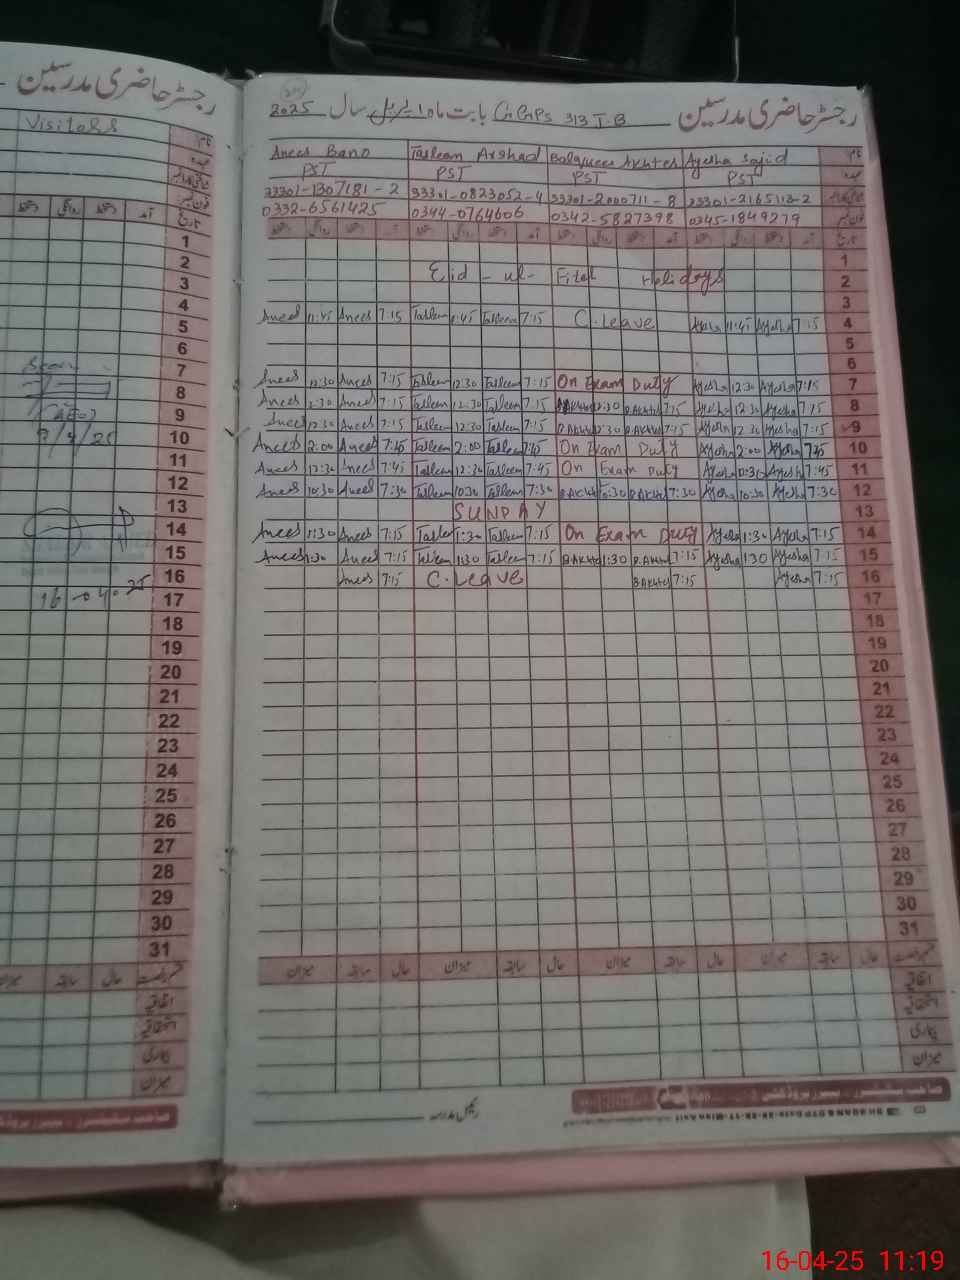 رجسٹر حاضری مدرسین
Visitors
نام
عہدہ
آمد
تاریخ
1
2
3
4
5
6
7
8
9
10
11
12
13
14
15
16
17
18
19
20
21
22
23
24
25
26
27
28
29
30
31
(AEO)
16-04-25
میزان سابقہ حال
اتفاقیہ
استحقاقیہ
بیماری
میزان
رجسٹر حاضری مدرسین GGPS 313 T.B بابت ماہ اپریل سال 2025
نام Ayesha Sajid Balqees Akhter Tasleem Arshad Anees Bano
عہدہ PST PST PST PST
33301-1307181-2 33301-0823052-4 33301-2000711-8 33301-2165118-2
فون نمبر 0332-6561425 0344-0764606 0342-5827398 0345-1849279
تاریخ آمد دستخط روانگی دستخط آمد دستخط روانگی دستخط آمد دستخط روانگی دستخط آمد دستخط روانگی دستخط
1
Eid-ul-Fitar Holidays 2
3
Anees 11:45 Anees 7:15 Tasleem 11:45 Tasleem 7:15 C.Leave Ayesha 11:45 Ayesha 7:15 4
5
6
Anees 12:30 Anees 7:15 Tasleem 12:30 Tasleem 7:15 On Exam Duty Ayesha 12:30 Ayesha 7:15 7
Anees 12:30 Anees 7:15 Tasleem 12:30 Tasleem 7:15 B.Akhter 12:30 B.Akhter 7:15 Ayesha 12:30 Ayesha 7:15 8
Anees 12:30 Anees 7:15 Tasleem 12:30 Tasleem 7:15 B.Akhter 12:30 B.Akhter 7:15 Ayesha 12:30 Ayesha 7:15 9
Anees 2:00 Anees 7:45 Tasleem 2:00 Tasleem 7:45 On Exam Duty Ayesha 2:00 Ayesha 7:45 10
Anees 12:30 Anees 7:45 Tasleem 12:30 Tasleem 7:45 On Exam Duty Ayesha 12:30 Ayesha 7:45 11
Anees 10:30 Anees 7:30 Tasleem 10:30 Tasleem 7:30 B.Akhter 10:30 B.Akhter 7:30 Ayesha 10:30 Ayesha 7:30 12
SUNDAY 13
Anees 1:30 Anees 7:15 Tasleem 1:30 Tasleem 7:15 On Exam Duty Ayesha 1:30 Ayesha 7:15 14
Anees 1:30 Anees 7:15 Tasleem 1:30 Tasleem 7:15 B.Akhter 1:30 B.Akhter 7:15 Ayesha 1:30 Ayesha 7:15 15
Anees 7:15 C.Leave B.Akhter 7:15 Ayesha 7:15 16
17
18
19
20
21
22
23
24
25
26
27
28
29
30
31
حال سابقہ میزان حال سابقہ میزان حال سابقہ میزان حال سابقہ میزان
اتفاقیہ
استحقاقیہ
بیماری
میزان
16-04-25 11:19